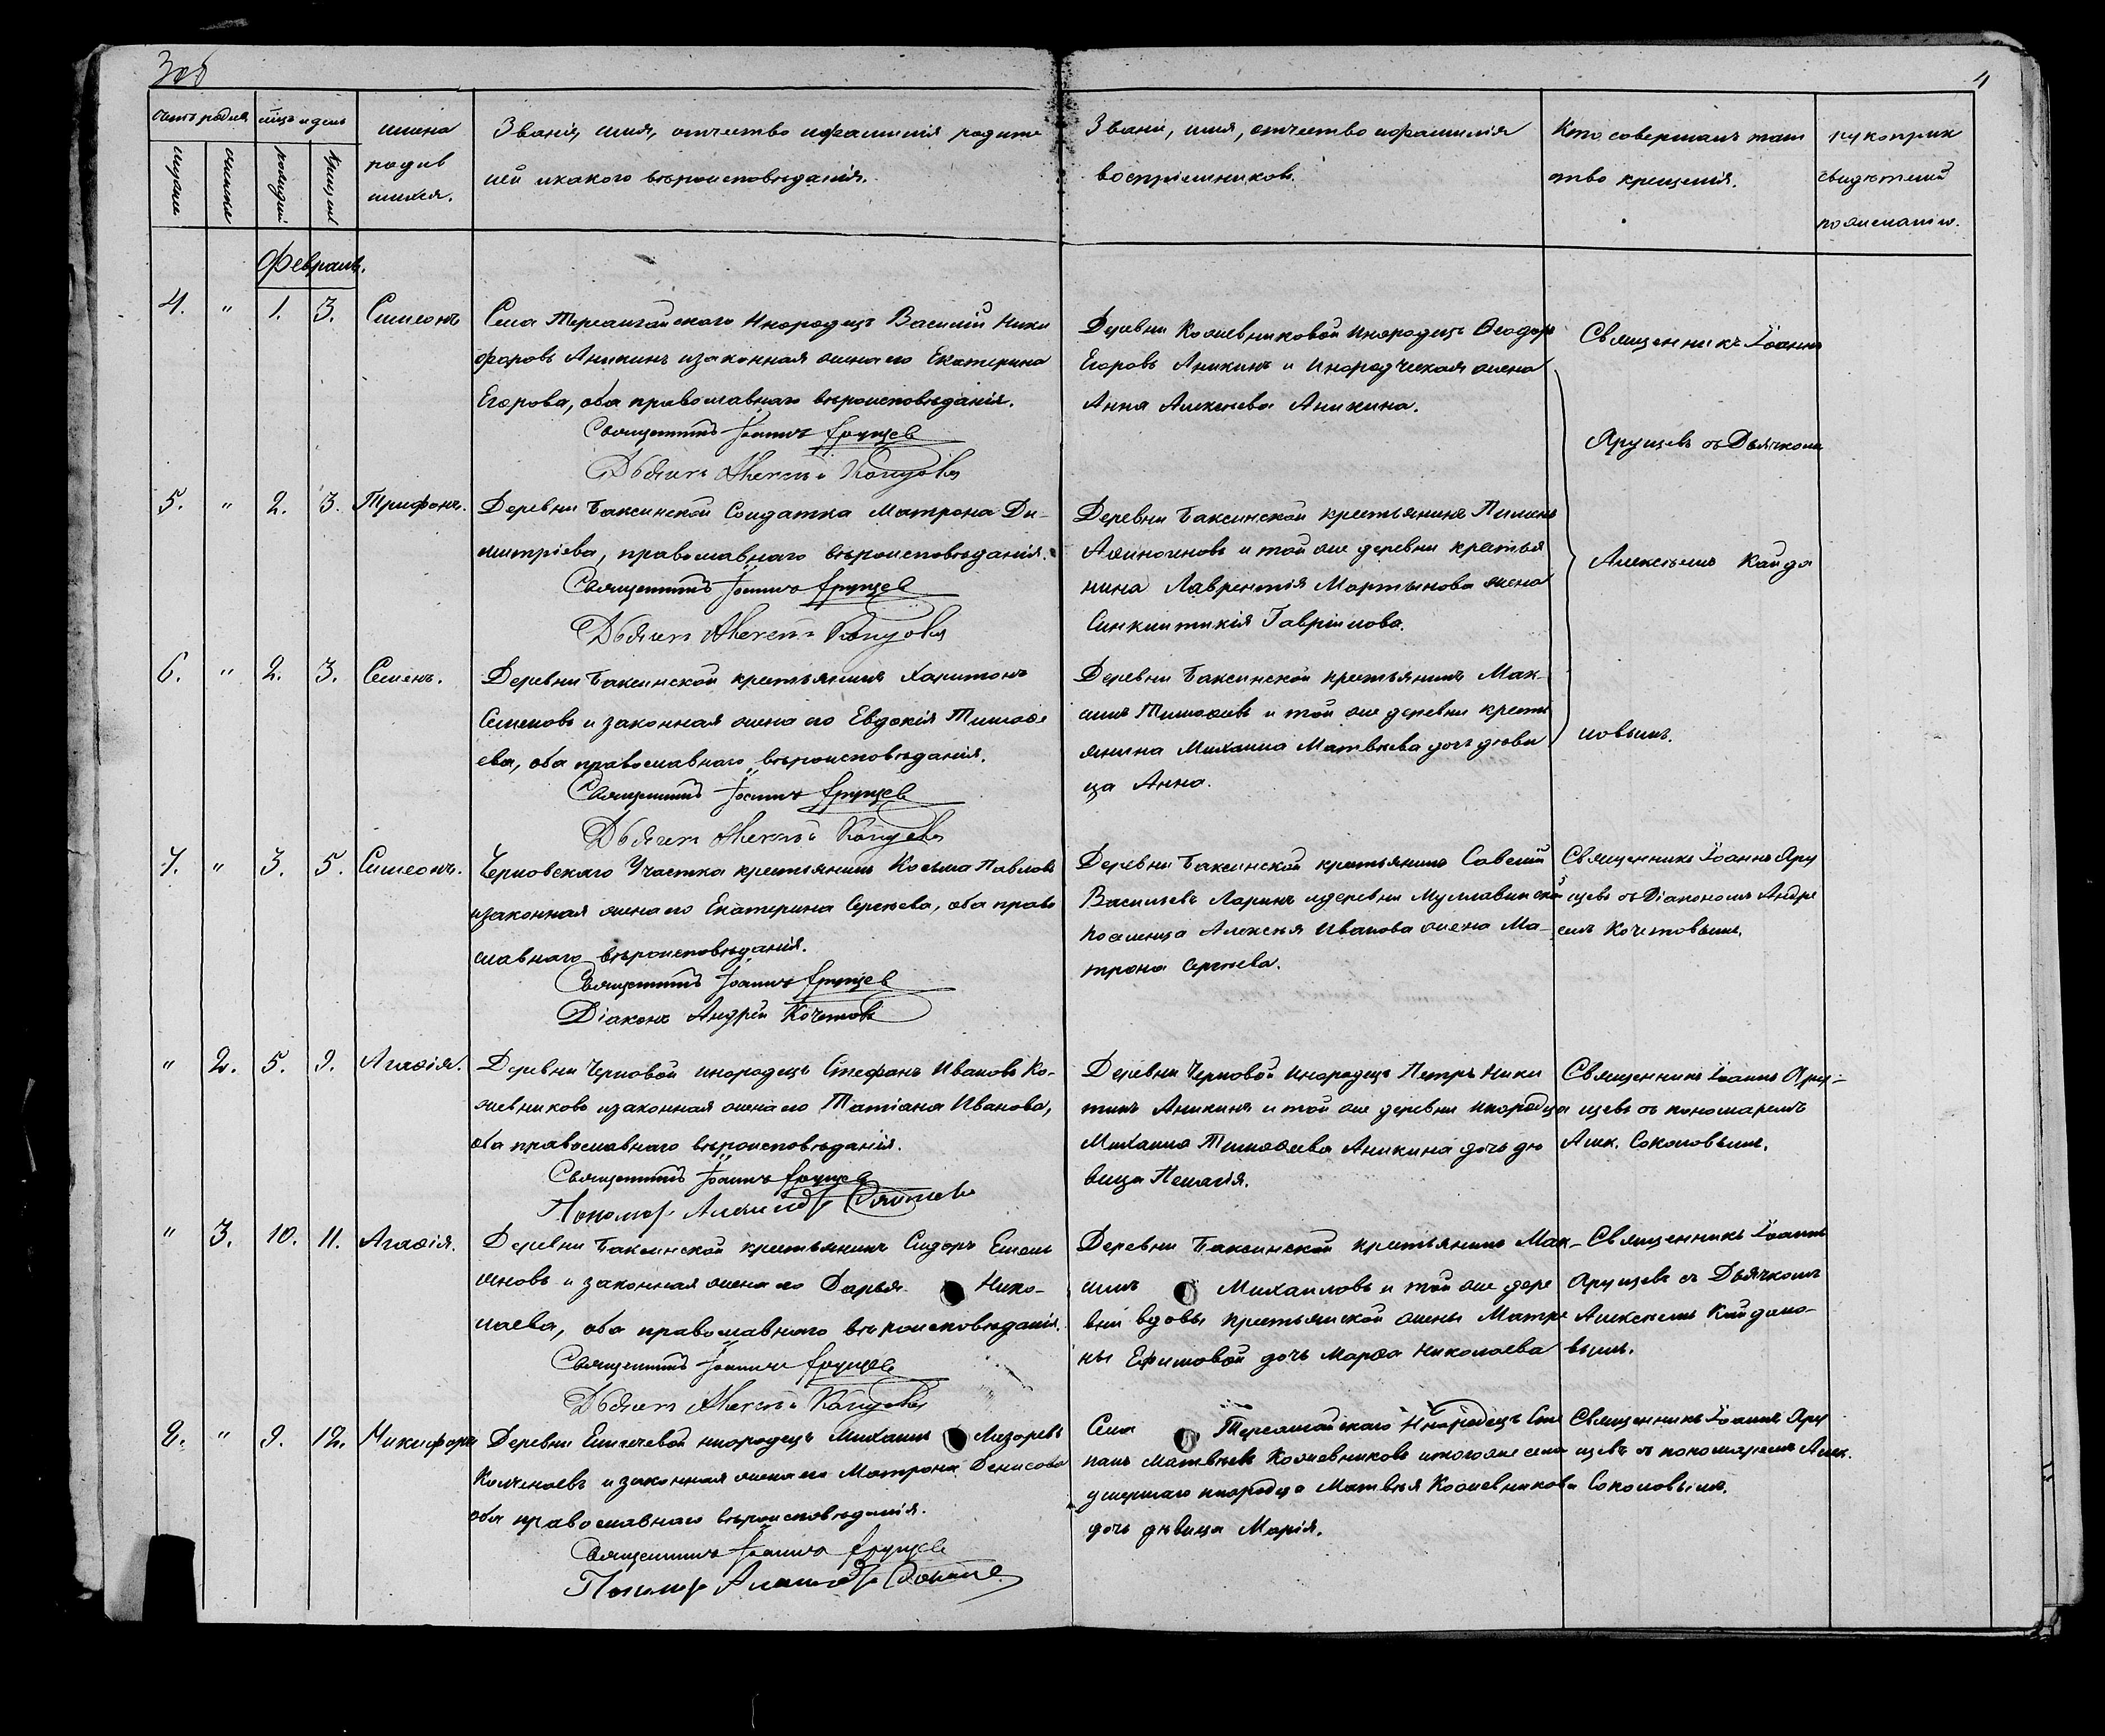 3об
4
счетъ родив
мѣсяцъ и день
имена
родив
шихся.
Званіе, имя, отчество и фамилія родите
лей и какого вѣроисповѣданія.
Званіе, имя, отчество и фамилія
воспріемниковъ.
Кто совершалъ таин
ство крещенія.
рукоприк
свидѣтелей
по желанію.
Февраль.
4. " 1. 3. Симеонъ
Села Терсалгайскаго Инородецъ Василій Ники
форовъ Аникинъ и законная жена его Екатерина
Егорова, оба православнаго вѣроисповѣданія.
Священникъ Іоаннъ Ярущевъ
Дьячекъ Алексѣй
Деревни Кожевниковой инородецъ Ѳеодоръ
Егоровъ Аникинъ и Инородческая жена
Анна Алексѣева Аникина.
Священникъ Іоаннъ
Ярущевъ съ Дьячкомъ
Алексѣемъ Кайда
ловымъ.
5. " 2. 3. Трифонъ.
Деревни Баксинской Солдатка Матрона Ди-
митріева, православнаго вѣроисповѣданія.
Священникъ Іоаннъ Ярущевъ
Дьячекъ Алексѣй
Деревни Баксинской крестьянинъ Пименъ
Аѳиногеновъ и той же деревни крестья
нина Лаврентія Мартынова жена
Синклитикія Гавріилова.
6. " 2. 3. Семенъ.
Деревни Баксинской крестьянинъ Харитонъ
Семеновъ и законная жена его Евдокія Тимоѳе
ева, оба православнаго вѣроисповѣданія.
Священникъ Іоаннъ Ярущевъ
Дьячекъ Алексѣй
Деревни Баксинской крестьянинъ Мак-
симъ Тимоѳеевъ и той же деревни кресть
янина Михаила Матвѣева дочь дѣви
ца Анна.
7. " 3. 5. Симеонъ.
Черновскаго Участка крестьянинъ Косьма Павловъ
и законная жена его Екатерина Сергѣева, оба право
славнаго вѣроисповѣданія.
Священникъ Іоаннъ Ярущевъ
Діаконъ Андрей Кочетовъ
Деревни Баксинской крестьянинъ Савелій
Васильевъ Ларинъ и деревни Муллавинской
поселенца Алексѣя Иванова жена Ма-
трона Сергѣева.
Священникъ Іоаннъ Яру
щевъ съ Діакономъ Андре
емъ Кочетовымъ.
" 2. 5. 9. Агаѳія.
Деревни Черновой инородецъ Стефанъ Ивановъ Ко-
жевниковъ и законная жена его Татіана Иванова,
оба православнаго вѣроисповѣданія.
Священникъ Іоаннъ Ярущевъ
Пономарь Александръ
Деревни Черновой Инородецъ Петръ Ники
тинъ Аникинъ и той же деревни инородца
Михаила Тимоѳеева Аникина дочь дѣ
вица Пелагія.
Священникъ Іоаннъ Яру-
щевъ съ пономаремъ
Алек. Соколовымъ.
" 3. 10. 11. Агаѳія.
Деревни Баксинской крестьянинъ Сидоръ Емель
яновъ и законная жена его Дарья Нико-
лаева, оба православнаго вѣроисповѣданія.
Священникъ Іоаннъ Ярущевъ
Дьячекъ Алексѣй
Деревни Баксинской крестьянинъ Мак-
симъ Михаиловъ и той же дере
вни вдовы крестьянской жены Матре
ны Ефимовой дочь Марѳа Николаева
Священникъ Іоаннъ
Ярущевъ съ Дьячкомъ
Алексѣемъ Кайдало-
вымъ.
8. " 9. 12. Никифоръ
Деревни инородецъ Михаилъ Лазаревъ
и законная жена его Матрона Денисова
оба православнаго вѣроисповѣданія.
Священникъ Іоаннъ Ярущевъ
Пономарь Александръ
Села Терсалгайскаго Инородецъ Сте
панъ Матвѣевъ Кожевниковъ и того же села
умершаго инородца Матвѣя Кожевникова
дочь дѣвица Марія.
Священникъ Іоаннъ Яру
щевъ съ пономаремъ Алек.
Соколовымъ.